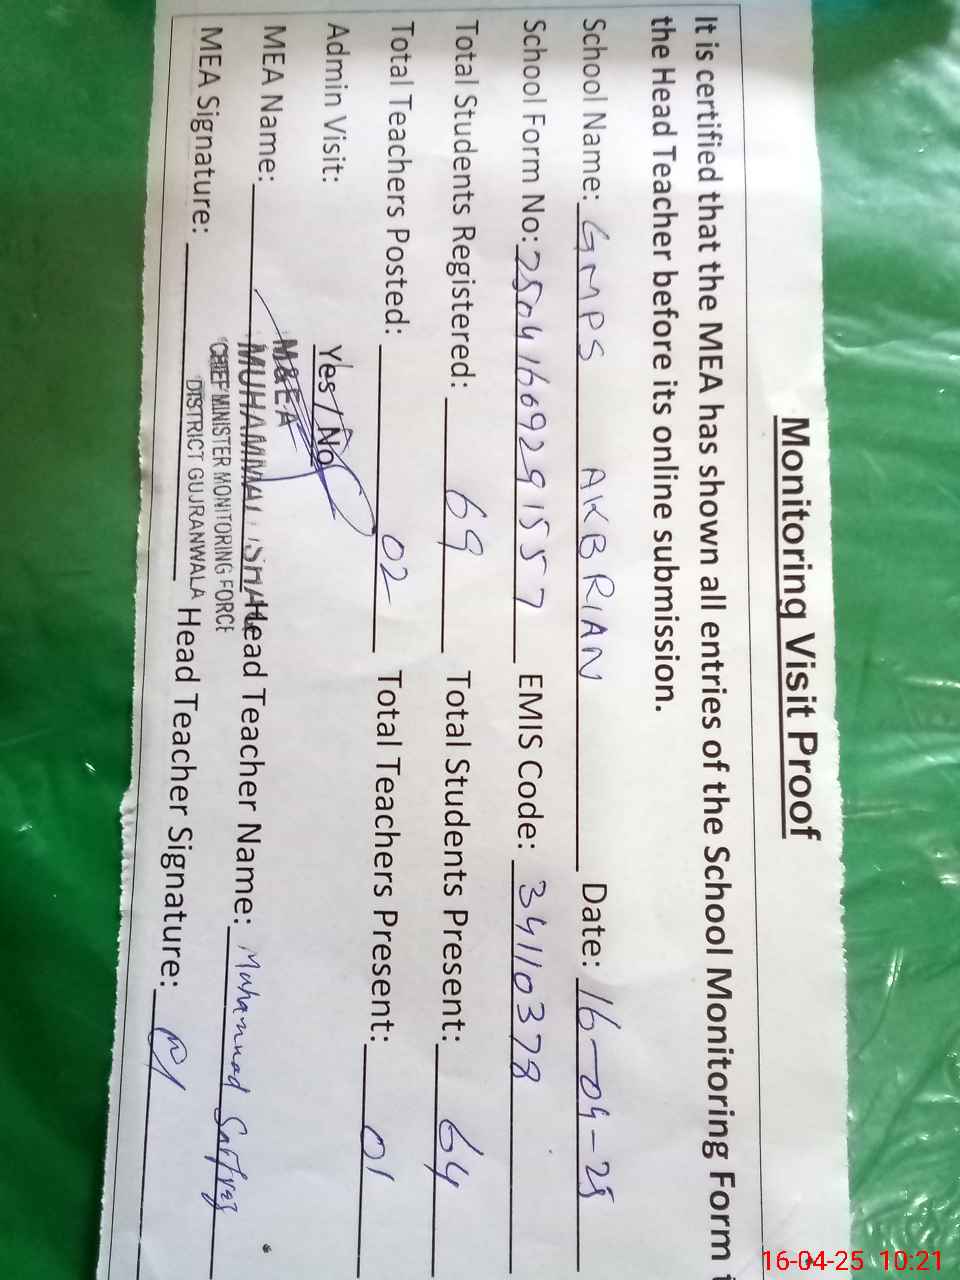 Monitoring Visit Proof
It is certified that the MEA has shown all entries of the School Monitoring Form t
the Head Teacher before its online submission.
School Name: GMPS AKBRIAN Date: 16-04-25
School Form No: 25041609291557 EMIS Code: 34110378
Total Students Registered: 69 Total Students Present: 64
Total Teachers Posted: 02 Total Teachers Present: 01
Admin Visit: Yes / No
M&EA
MEA Name: MUHAMMAD Head Teacher Name: Muhammad Sarfraz
CHIEF MINISTER MONITORING FORCE
DISTRICT GUJRANWALA
MEA Signature: Head Teacher Signature:
16-04-25 10:21